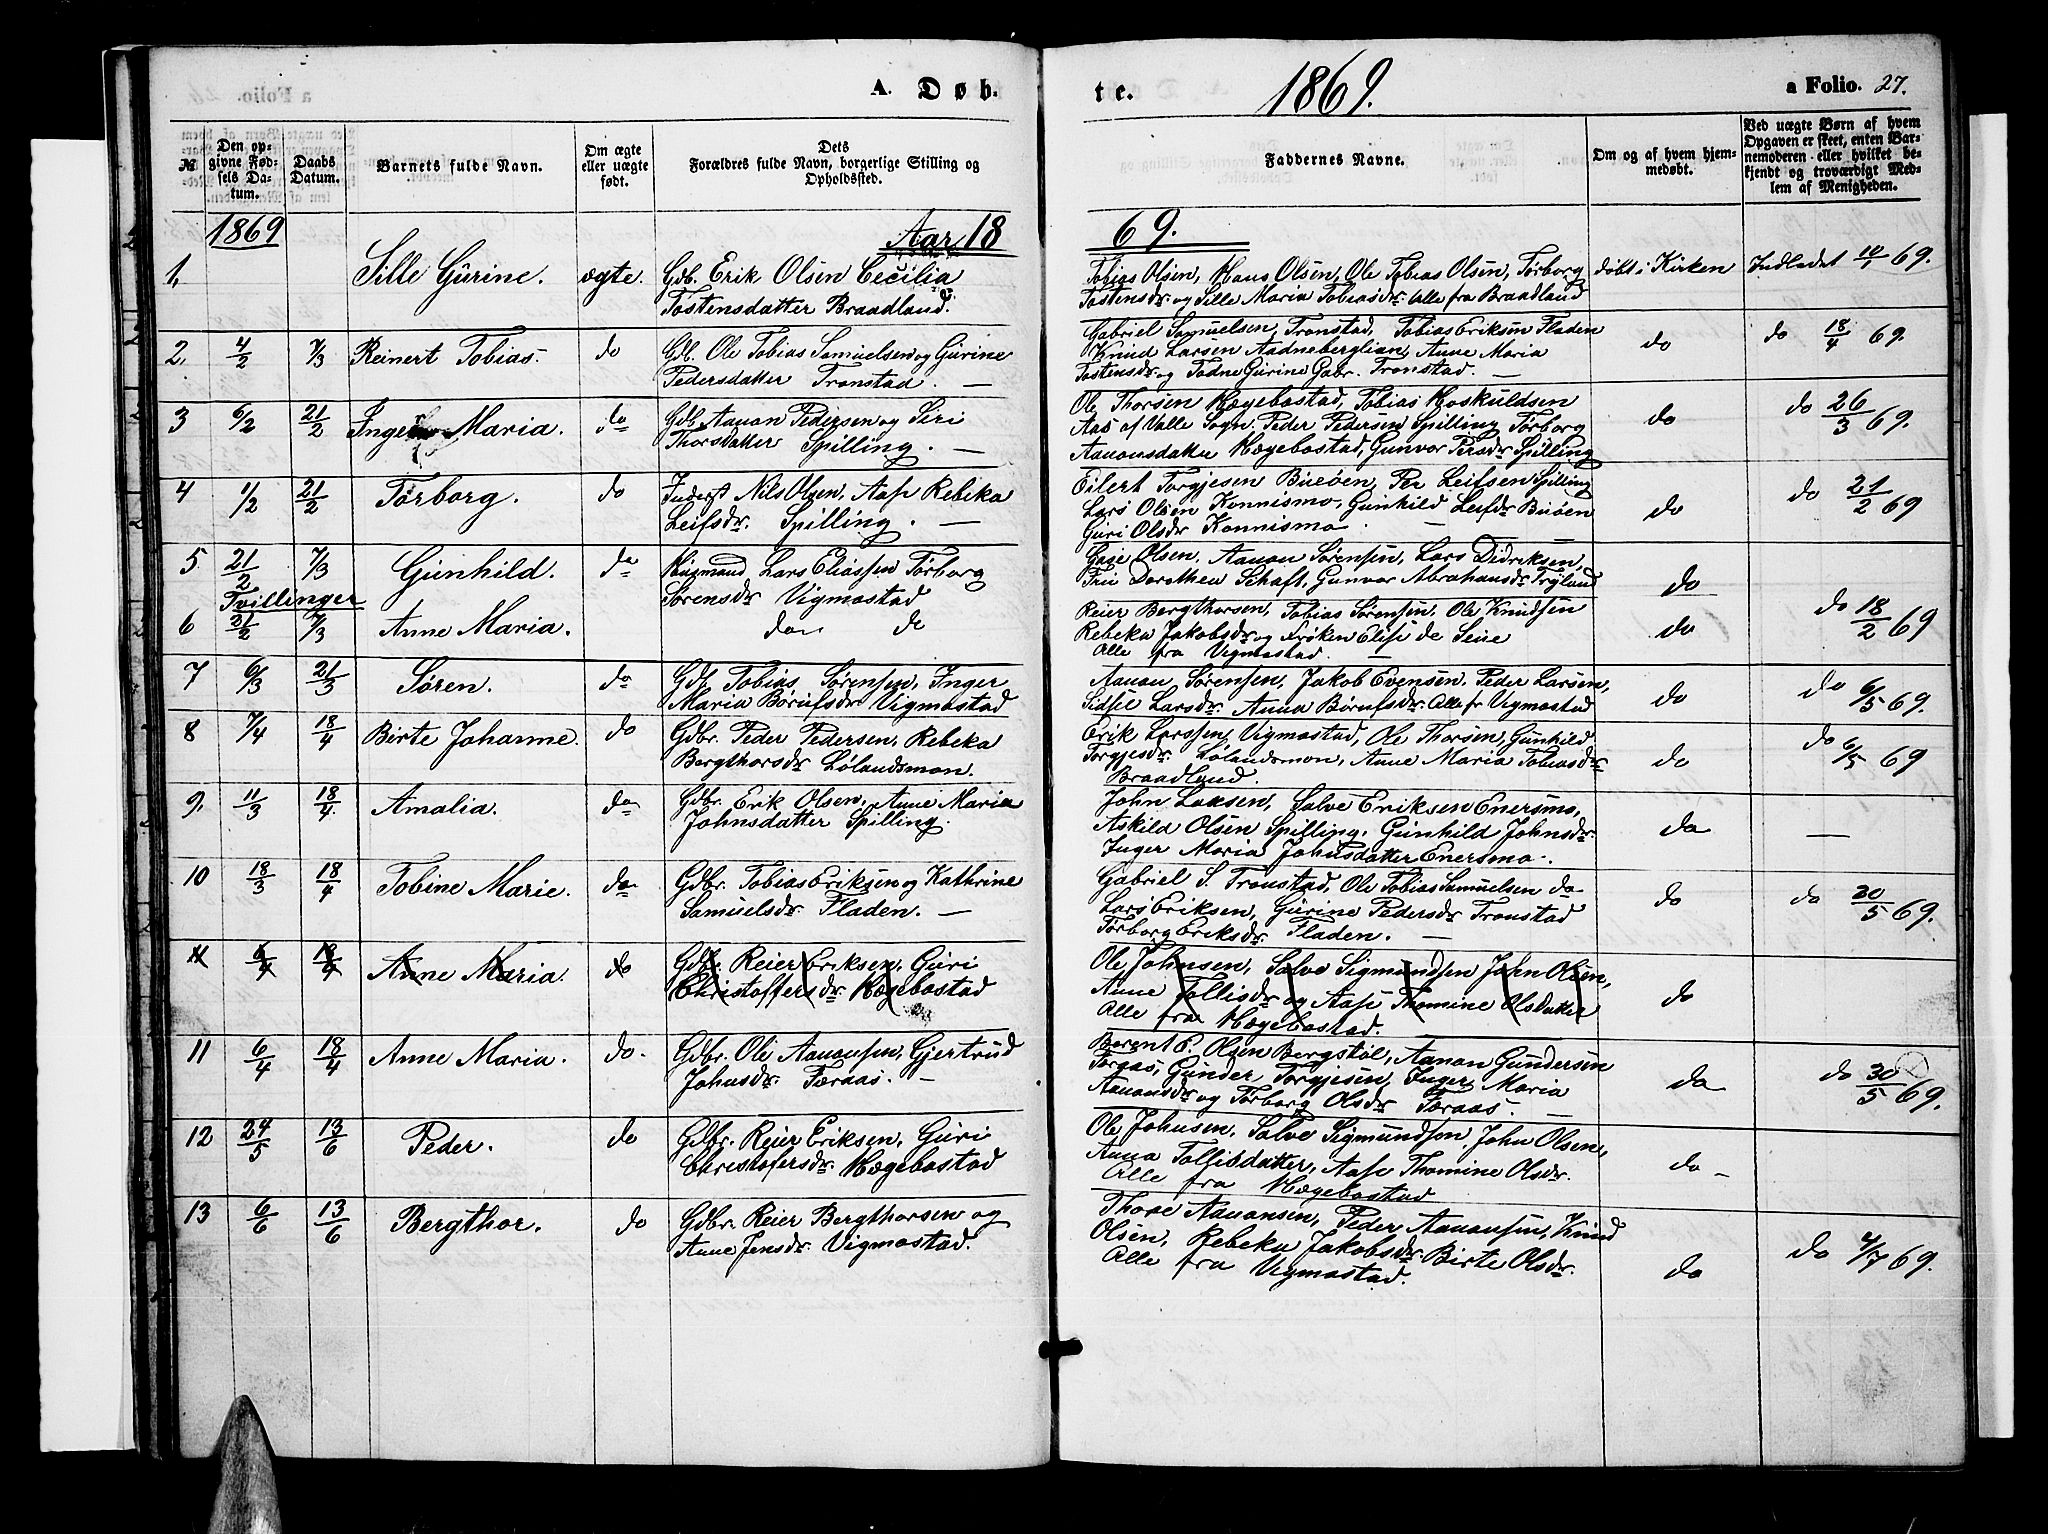 A. Døb-
te. 1869. a Folio. 27.
№
Den op-
givne Fød-
sels Da-
tum.
Daabs
Datum.
Barnets fulde Navn.
Om ægte
eller uægte
født.
Dets
Forældres fulde Navn, borgerlige Stilling og
Opholdssted.
Faddernes Navne.
Om og af hvem hjem-
medøbt.
Ved uægte Børn af hvem
Opgaven er skeet, enten Bar-
nemoderen eller hvilket be-
kjendt og troværdigt Med-
lem af Menigheden.
1869 Aar 18 69.
1, Sille Gurine. ægte. Gdb. Erik Olsen Cecilia
Tostensdatter Braadland.
Tobias Olsen, Hans Olsen, Ole Tobias Olsen, Torborg
Tostensdr og Sille Maria Tobiasdr Alle fra Braadland
døbt i Kirken Indledet 10/1 69.
2. 4/2 7/3 Reinert Tobias. do Gdb. Ole Tobias Samuelsen og Gurine
Pedersdatter Tronstad. —
Gabriel Samuelsen, Tronstad, Tobias Eriksen Fladen
Knud Larsen Aadneberglian, Anne Maria
Tostensdr og Tadne Gurine Gabr. Tronstad. —
do do 18/4 69.
3 6/2 21/2 Inger Maria. do Gdb Aanon Pedersen og Siri
Thorsdatter Spilling. —
Ole Thorsen Hægebostad, Tobias Hoskuldsen
Aas af Valle Sogn. Peder Pedersen Spilling Torborg
Aanonsdatter Hægebostad, Gunvor Persdr Spilling
do do 26/3 69.
4 11/2 21/2 Torborg. do Inderst Nils Olsen, Aase Rebeka
Leifsdr. Spilling. —
Eilert Torgjesen Buøen, Per Leifsen Spilling
Lars Olsen Konnismo, Gunhild Leifdr Buøen
Guri Olsdr Konnismo —
do do 21/2 69
5 21/2 7/3 Gunhild. do Husmand Lars Eliassen Torborg
Sørensdr Vigmostad
Olsen, Aanon Sørensen, Lars Didriksen,
Dorothea Schaft, Gunvor Abrahamsdr Tryland
do
Tvillinger
6 21/2 7/3 Anne Maria. do do
Reier Bergthorsen, Tobias Sørensen, Ole Knudsen
Rebeka Jakobsdr og Frøken Elise de Seue
Alle fra Vigmostad. —
do do 18/2 69
7 6/3 21/3 Søren. do Gdb Tobias Sørensen, Inger
Maria Børufsdr Vigmostad
Aanon Sørensen, Jakob Evensen, Peder Larsen,
Sidsel Larsdr. Anna Børufsdr. Alle fr Vigmostad
do do 6/5 69.
8 7/4 18/4 Birte Johanne. do Gdbr. Peder Pedersen, Rebeka
Bergthorsdr Lølandsmon.
Erik Larssen, Vigmostad, Ole Thorsen, Gunhild
Torgjesdr. Lølandsmon, Anne Maria Tobiasdr
Braadland.
do do 6/5 69
9. 11/3 18/4. Amalia. do Gdbr. Erik Olsen, Anne Maria
Johnsdatter Spilling.
John Laxsen, Salve Eriksen Enersmo,
Askild Olsen Spilling, Gunhild Johnsdr.
Inger Maria Johnsdatter Enersmo.
do —
10 18/3 18/4 Tobine Marie. do Gdbr. Tobias Eriksen og Kathrine
Samuelsdr. Fladen. —
Gabriel S. Tronstad, Ole Tobias Samuelsen do
Lars Eriksen, Gurine Pedersdr Tronstad
Torborg Eriksdr. Fladen. —
do do 30/5 69.
11 6/4 18/4 Anne Maria do Gdbr. Reier Eriksen, Guri
Christoffersdr Hægebostad
Ole Johnsen, Salve Sigmundsen John Olsen,
Anne Tollisdr og Aase Thomine Olsdatter
Alle fra Hægebostad.
do
11 6/4 18/4 Anne Maria. do. Gdbr. Ole Aanonsen, Gjertrud
Johnsdr. Færaas. —
Berent P. Olsen Bergstøl, Aanon Gundersen
Færaas, Gunder Torgjesen, Inger Maria
Aanonsdr og Torborg Olsdr Færaas. —
do do 30/5 69.
12 24/5 13/6 Peder. do Gdbr. Reier Eriksen, Guri
Christofersdr. Hægebostad
Ole Johnsen, Salve Sigmundsen, John Olsen,
Anna Tollisdatter, Aase Thomine Olsdr.
Alle fra Hægebostad
do -
13 6/6 13/6 Bergthor. do Gdbr. Reier Bergthorsen og
Anne Jensdr. Vigmostad.
Thore Aanonsen, Peder Aanonsen, Knud
Olsen, Rebeka Jakobsdr Birte Olsdr.
Alle fra Vigmostad.
do do 4/7 69.